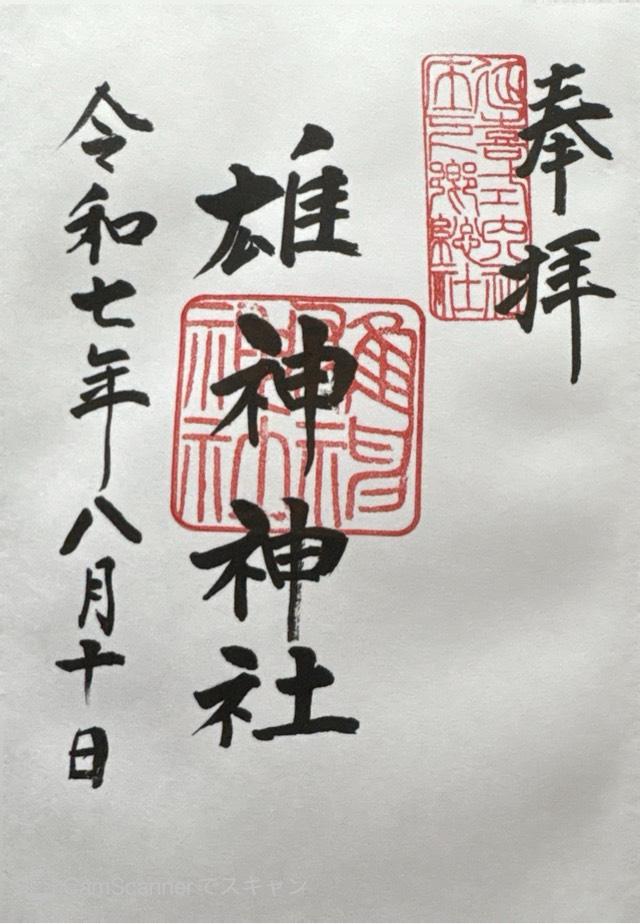 奉拝
延喜式内社
雄神神社
令和七年八月十日
CamScannerでスキャン